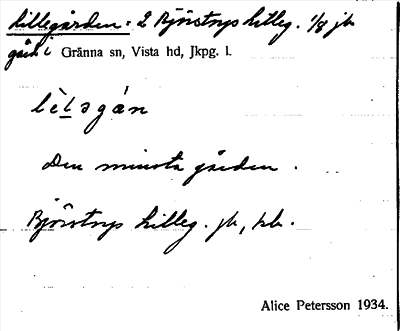 Lillegården: 2 Björstorps lilleg. 1/8 jb
gård i Gränna sn, Vista hd, Jkpg. l.
lèləgán
Den minsta gården.
Björstorps Lilleg. jb, kb.
Alice Petersson 1934.